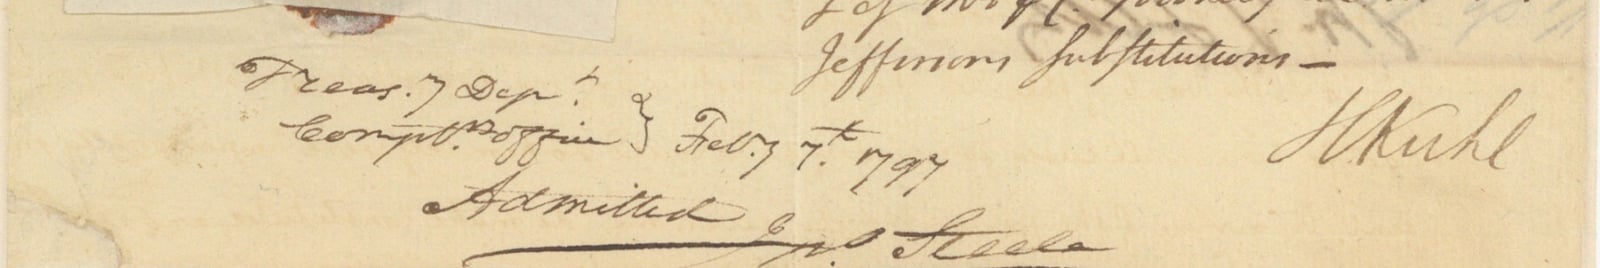 Jefferson's Substitutions —
Treas.y Dep.t
Compt.rs office } Feb.y 7.th 1797
H Kuhl
Admitted
Jn.o Steele